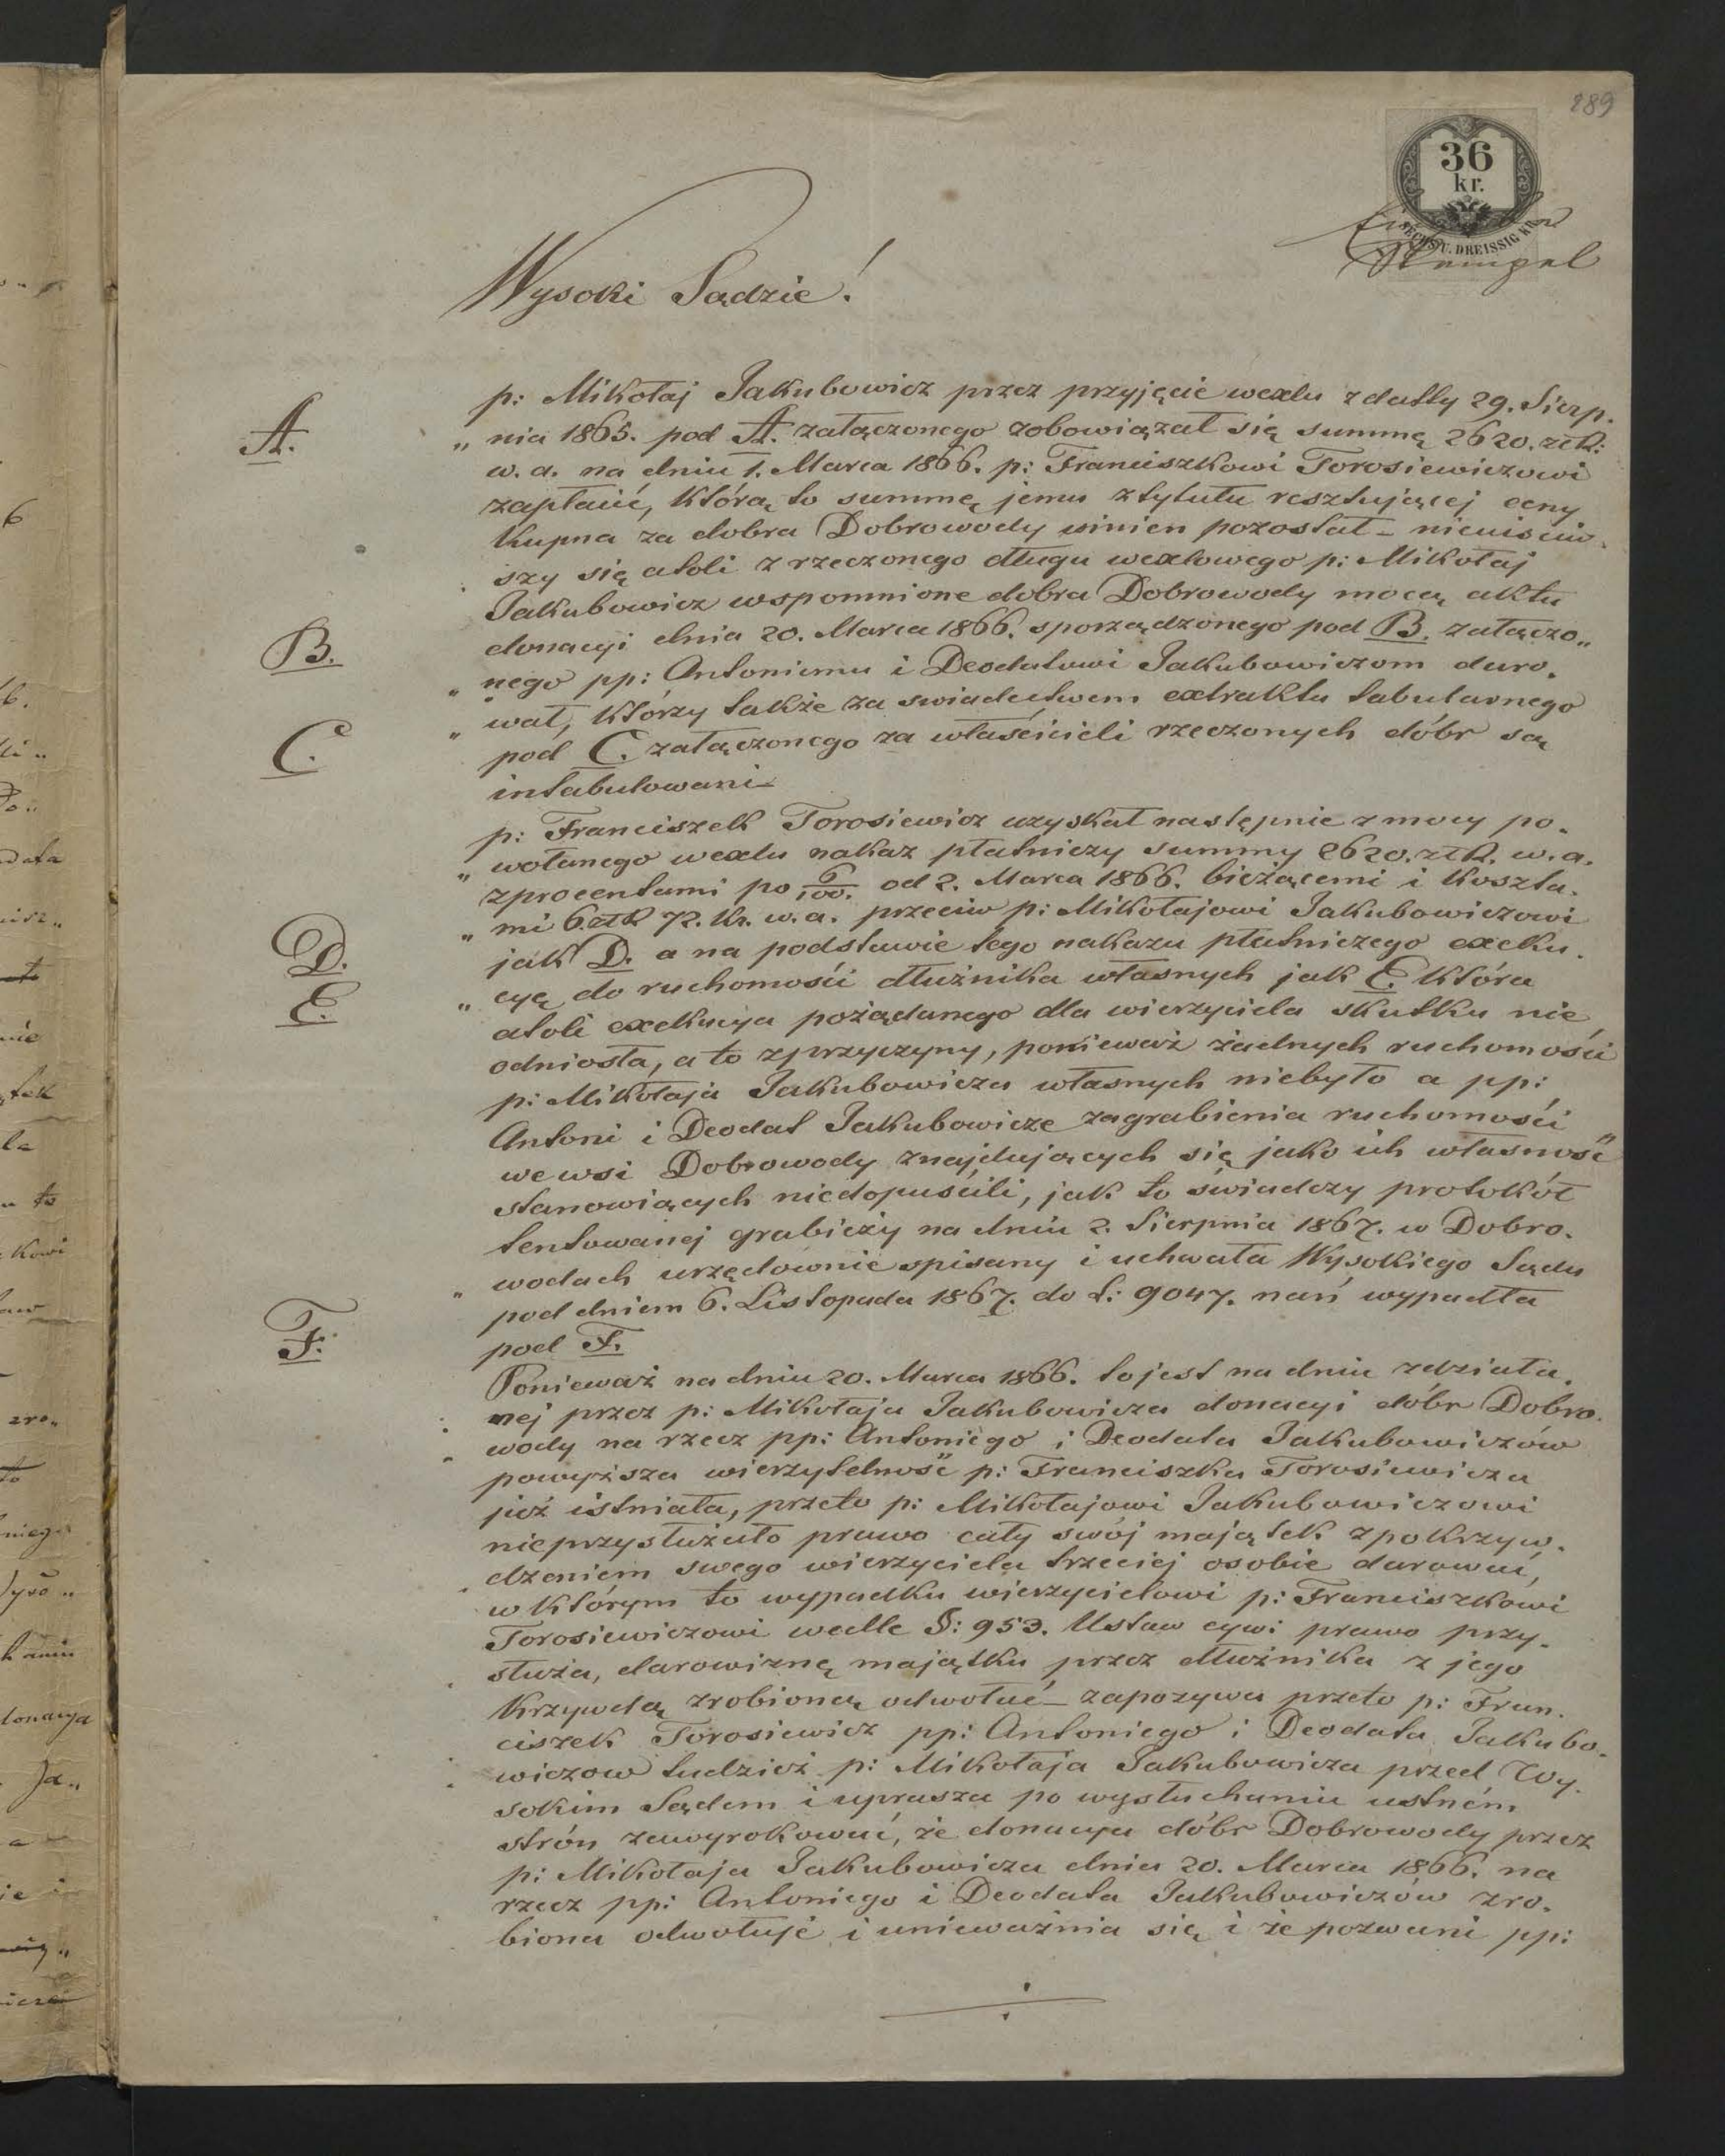 289
36
kr.
SECHS U. DREISSIG KR.
Stempel
Wysoki Sądzie!
p: Mikołaj Jakubowicz przez przyjęcie wexlu z datty 29. Sierp.
A.
„ nia 1865. pod A. załączonego zobowiązał się summę 2620. złR:
w. a. na dniu 1. Marca 1866. p: Franciszkowi Torosiewiczowi
zapłacić, którą to summę jemu z tytułu resztującej ceny
kupna za dobra Dobrowody winien pozostał – nieuiściw.
szy się atoli z rzeczonego długu wexlowego p: Mikołaj
Jakubowicz wspomnione dobra Dobrowody mocą aktu
B.
donacyi dnia 20. Marca 1866. sporządzonego pod B. załączo„
„ nego pp: Antoniemu i Deodatowi Jakubowiczom daro.
„ wał, którzy także za swiadectwem extraktu tabularnego
C.
pod C. załączonego za właścicieli rzeczonych dóbr są
intabulowani –
p: Franciszek Torosiewicz uzyskał następnie z mocy po.
„ wołanego wexlu nakaz płatniczy summy 2620. złR. w. a.
z procentami po 6/100. od 2. Marca 1866. bieżącemi i koszta.
„ mi 6. złR 72. kr. w. a. przeciw p: Mikołajowi Jakubowiczowi
D.
jak D. a na podstawie tego nakazu płatniczego exeku.
E.
„ cyą do ruchomości dłużnika własnych jak E. która
atoli exekucya pożądanego dla wierzyciela skutku nie
odniosła, a to z przyczyny, ponieważ żadnych ruchomości
p: Mikołaja Jakubowicza własnych niebyło a pp:
Antoni i Deodat Jakubowicze zagrabienia ruchomości
we wsi Dobrowody znajdujących się jako ich własność
stanowiących niedopuścili, jak to świadczy protokół
tentowanej grabieży na dniu 2. Sierpnia 1867. w Dobro.
wodach urzędownie spisany i uchwała Wysokiego Sądu
„ pod dniem 6. Listopada 1867. do L: 9047. nań wypadła
F.
pod F.
Ponieważ na dniu 20. Marca 1866. to jest na dniu zdziała.
nej przez p: Mikołaja Jakubowicza donacyi dóbr Dobro.
wody na rzecz pp: Antoniego i Deodata Jakubowiczów
powyższa wierzytelność p: Franciszka Torosiewicza
już istniała, przeto p: Mikołajowi Jakubowiczowi
nieprzysłużało prawo cały swój majątek z pokrzyw.
dzeniem swego wierzyciela trzeciej osobie darować,
w którym to wypadku wierzycielowi p: Franciszkowi
Torosiewiczowi wedle §: 953. Ustaw cywi prawo przy.
służa, darowiznę majątku przez dłużnika z jego
krzywdą zrobioną odwołać – zapozywa przeto p: Fran.
ciszek Torosiewicz pp: Antoniego i Deodata Jakubo.
wiczow tudzież p: Mikołaja Jakubowicza przed Wy.
sokim Sądem i uprasza po wysłuchaniu ustném
strón zawyrokować, że donacya dóbr Dobrowody przez
p: Mikołaja Jakubowicza dnia 20. Marca 1866. na
rzecz pp: Antoniego i Deodata Jakubowiczów zro.
biona odwołuje i unieważnia się i że pozwani pp: